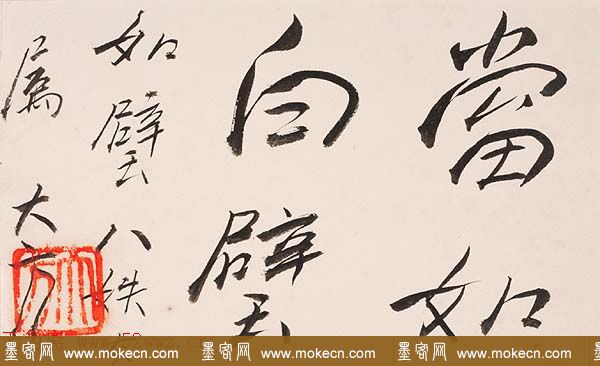 當如
白璧
如璧八秩
属
大方
墨客网 www.mokecn.com 墨客网 www.mokecn.com 墨客网 www.mokecn.com